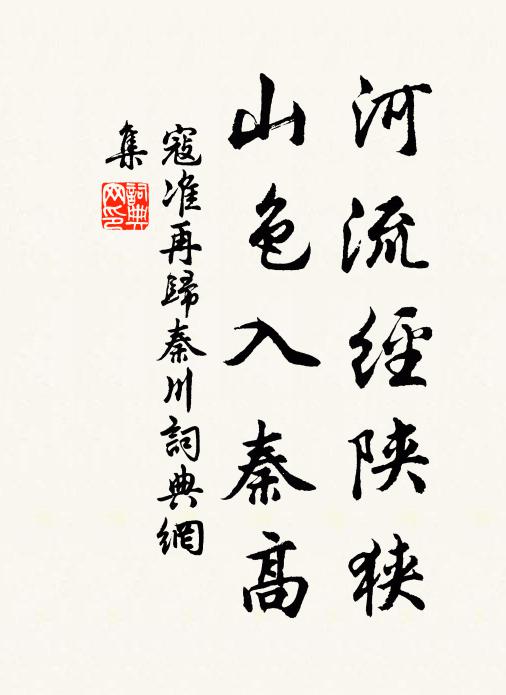 河流經陝狹
山色入秦高
寇准再歸秦川詞典網
集
詞典网印